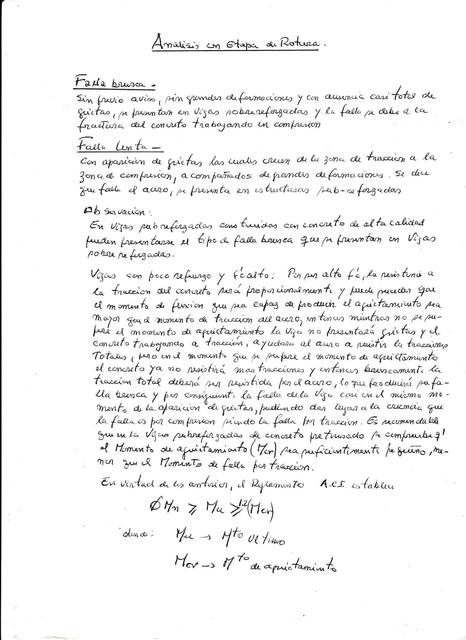 Análisis en Etapa de Rotura.
Falla brusca.-
Sin previo aviso, sin grandes deformaciones y con ausencia casi total de
grietas, se presentan en vigas sobrereforzadas y la falla se debe a la
fractura del concreto trabajando en compresión
Falla Lenta.-
Con aparición de grietas las cuales crecen de la zona de tracción a la
zona de compresión, acompañados de grandes deformaciones. Se dice
que falla el acero, se presenta en estructuras sub-reforzadas
Observación:
En Vigas sub reforzadas construidas con concreto de alta calidad
pueden presentarse el tipo de falla brusca que se presentan en Vigas
sobre reforzadas.
Vigas con poco refuerzo y f'c alto: Por ser alto f'c, la resistencia a
la tracción del concreto será proporcionalmente y puede suceder que
el momento de flexión que sea capaz de producir el agrietamiento sea
mayor que el momento de tracción del acero, entonces mientras no se su-
pere el momento de agrietamiento la viga no presentará grietas y el
concreto trabajando a tracción, ayudará al acero a resistir la tracciones
Totales, pero en el momento que se supere el momento de agrietamiento
el concreto ya no resistirá mas tracciones y entonces bruscamente la
tracción total deberá ser resistida por el acero, lo que producirá su fa-
lla brusca y por consiguiente la falla de la viga casi en el mismo mo-
mento de la aparición de grietas, pudiendo dar lugar a la creencia que
la falla es por compresión siendo la falla por tracción. Es recomendable
que en la Vigas subreforzadas de concreto pretensado se compruebe q'
el Momento de agrietamiento (Mcr) sea suficientemente pequeño, me-
nor que el Momento de falla por tracción.
En virtud de los anterior, el Reglamento A.C.I. establece
ØMn ≥ Mu ≥ 1.2(Mcr)
donde: Mu → Mto Ultimo
Mcr → Mto de agrietamiento